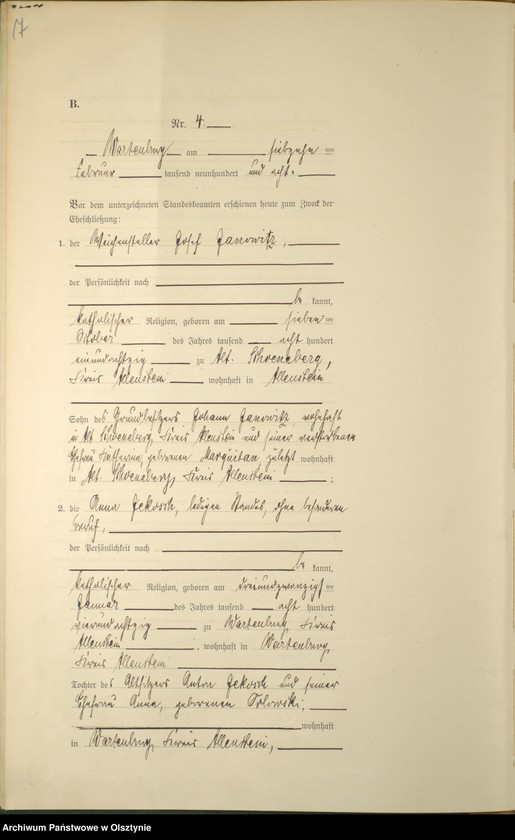 17
B.
Nr. 4.
Wartenburg am siebzehn
Februar tausend neunhundert und acht.
Vor dem unterzeichneten Standesbeamten erschienen heute zum Zweck der
Eheschließung:
1. der Weichensteller Josef Janowitz,
der Persönlichkeit nach
be kannt,
katholischer Religion, geboren am sieben
Oktober des Jahres tausend acht hundert
einundachtzig zu Alt. Schoeneberg,
Kreis Allenstein wohnhaft in Allenstein
Sohn des Grundbesitzers Johann Janowitz, wohnhaft
in Alt Schoeneberg, Kreis Allenstein und seiner verstorbenen
Ehefrau Katharina, geborenen Marquitan, zuletzt wohnhaft
in Alt. Schoeneberg, Kreis Allenstein ;
2. die Anna Jekosch, ledigen Standes, ohne besonderen
Beruf,
der Persönlichkeit nach
be kannt,
katholischer Religion, geboren am dreiundzwanzigs
Januar des Jahres tausend acht hundert
vierundachtzig zu Wartenburg, Kreis
Allenstein, wohnhaft in Wartenburg,
Kreis Allenstein
Tochter des Altsitzers Anton Jekosch und seiner
Ehefrau Anna, geborenen Orlowski,
wohnhaft
in Wartenburg, Kreis Allenstein,
Archiwum Państwowe w Olsztynie